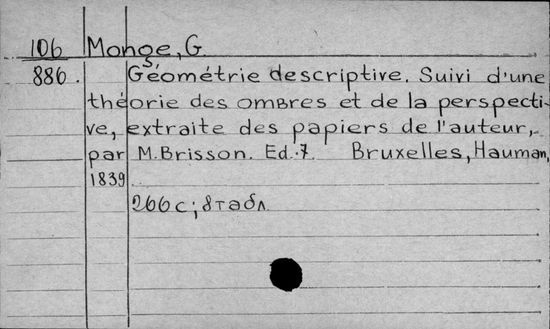 106 Monge, G.
886. Géométrie descriptive. Suivi d'une
théorie des ombres et de la perspecti-
ve, extraite des papiers de l'auteur,
par M. Brisson. Ed. 7. Bruxelles, Hauman,
1839
266 с; 8 табл.